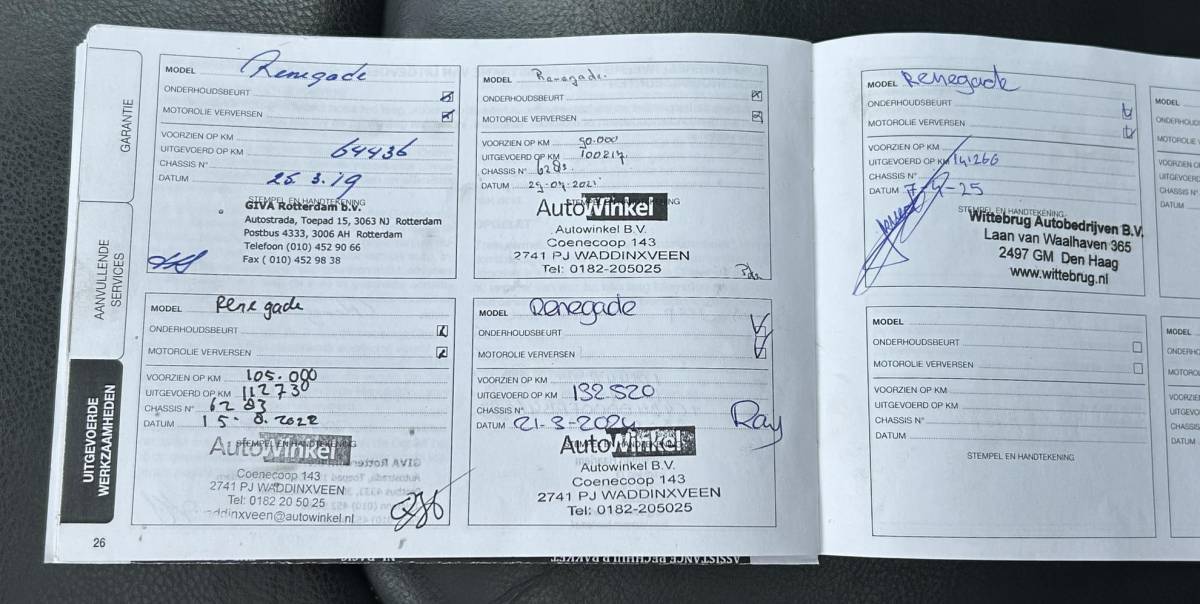 GARANTIE
AANVULLENDE
SERVICES
UITGEVOERDE
WERKZAAMHEDEN
26
MODEL Renegade
ONDERHOUDSBEURT
MOTOROLIE VERVERSEN
VOORZIEN OP KM
UITGEVOERD OP KM 64436
CHASSIS N°
DATUM 25.3.19
STEMPEL EN HANDTEKENING
GIVA Rotterdam b.v.
Autostrada, Toepad 15, 3063 NJ Rotterdam
Postbus 4333, 3006 AH Rotterdam
Telefoon (010) 452 90 66
Fax ( 010) 452 98 38
MODEL Renegade
ONDERHOUDSBEURT
MOTOROLIE VERVERSEN
VOORZIEN OP KM 90.000
UITGEVOERD OP KM 100217
CHASSIS N° 6283
DATUM
STEMPEL EN HANDTEKENING
AutoWinkel
Autowinkel B.V.
Coenecoop 143
2741 PJ WADDINXVEEN
Tel: 0182-205025
MODEL Renegade
ONDERHOUDSBEURT
MOTOROLIE VERVERSEN
VOORZIEN OP KM 105.000
UITGEVOERD OP KM 112730
CHASSIS N° 6283
DATUM 15.8.2022
STEMPEL EN HANDTEKENING
AutoWinkel
Coenecoop 143
2741 PJ WADDINXVEEN
Tel: 0182 20 50 25
addinxveen@autowinkel.nl
MODEL Renegade
ONDERHOUDSBEURT
MOTOROLIE VERVERSEN
VOORZIEN OP KM
UITGEVOERD OP KM 132520
CHASSIS N°
DATUM 21-3-2024
Ray
STEMPEL EN HANDTEKENING
AutoWinkel
Autowinkel B.V.
Coenecoop 143
2741 PJ WADDINXVEEN
Tel: 0182-205025
MODEL Renegade
ONDERHOUDSBEURT
MOTOROLIE VERVERSEN
VOORZIEN OP KM
UITGEVOERD OP KM 141.266
CHASSIS N°
DATUM 7-4-25
STEMPEL EN HANDTEKENING
Wittebrug Autobedrijven B.V.
Laan van Waalhaven 365
2497 GM Den Haag
www.wittebrug.nl
MODEL
ONDERHOUDSBEURT
MOTOROLIE VERVERSEN
VOORZIEN OP KM
UITGEVOERD OP KM
CHASSIS N°
DATUM
STEMPEL EN HANDTEKENING
MODEL
ONDERHOUDS
MOTOROLIE V
VOORZIEN O
UITGEVOERD
CHASSIS N°
DATUM
MODEL
ONDERHO
MOTORO
VOORZIE
UITGEVO
CHASSIS
DATUM